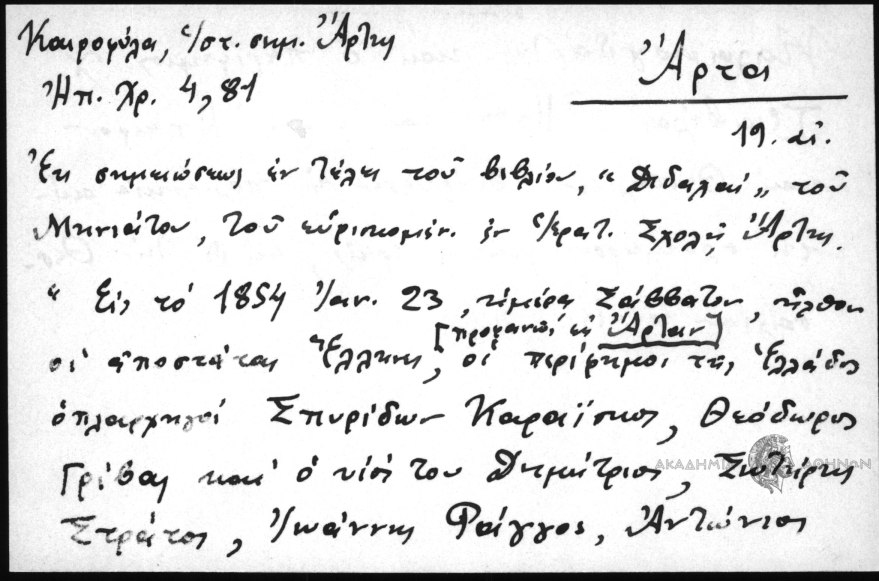 Καιροφύλα, Ἱστ. σημ. Ἄρτης
Ἄρτα
Ἠπ. Χρ. 4, 81
19. αἰ.
Ἐκ σημειώσεως ἐν τέλει τοῦ βιβλίου, "Διδαχαί" τοῦ
Μηνιάτου, τοῦ εὑρισκομέν. ἐν Ἱερατ. Σχολῇ Ἄρτης.
" Εἰς τό 1854 Ἰαν. 23, ἡμέρα Σάββατον, ἦλθον
[προφανῶς εἰς Ἄρταν]
οἱ ἀποστάται Ἕλληνες, οἱ περίφημοι τῆς Ἑλλάδος
ὁπλαρχηγοί Σπυρίδων Καραΐσκος, Θεόδωρος
Γρίβας καί ὁ υἱός του Δημήτριος, Σωτήρης
Στράτος, Ἰωάννης Ράγγος, Ἀντώνιος
ΑΚΑΔΗΜΙΑ ΑΘΗΝΩΝ